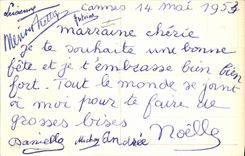 Cannes 14 mai 1953
Marraine chérie
je te souhaite une bonne
fête et je t'embrasse bien bien
fort. Tout le monde se joint
à moi pour te faire de
grosses bises Noëlle
Danielle Andrée